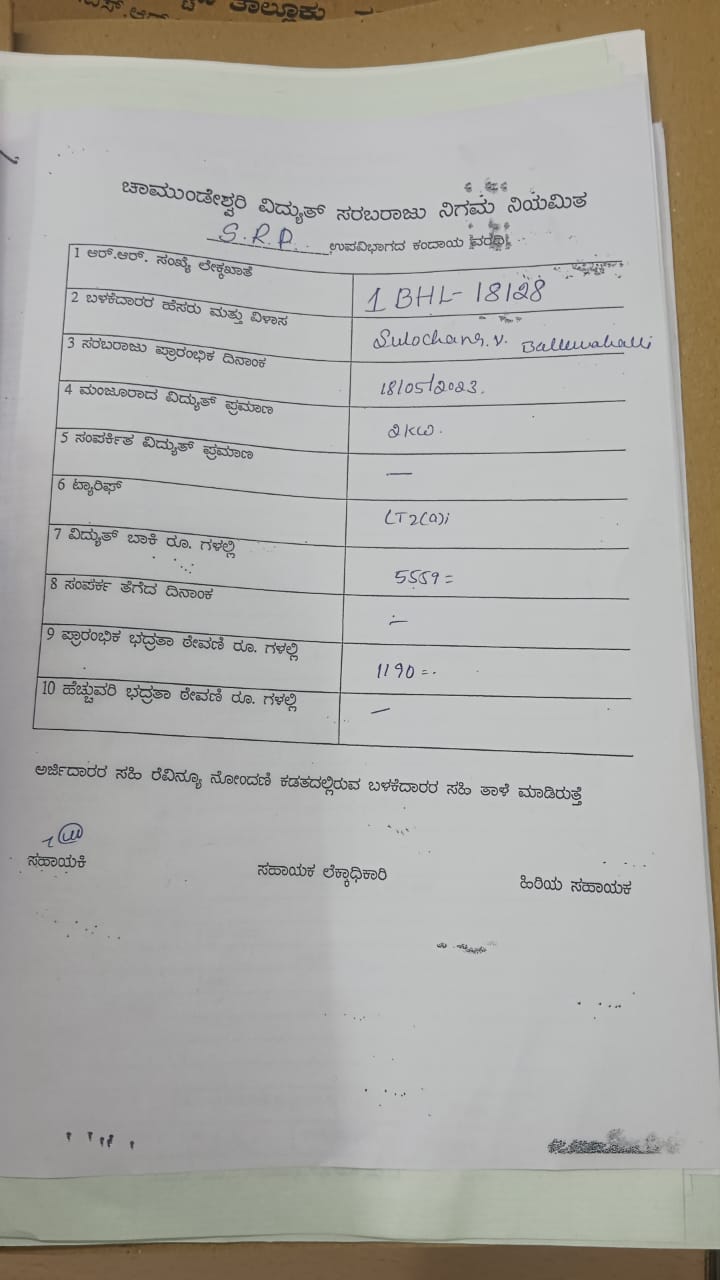 ತಾಲ್ಲೂಕು
ಚಾಮುಂಡೇಶ್ವರಿ ವಿದ್ಯುತ್ ಸರಬರಾಜು ನಿಗಮ ನಿಯಮಿತ
S.R.P. ಉಪವಿಭಾಗದ ಕಂದಾಯ ವರದಿ
1 ಆರ್.ಆರ್. ಸಂಖ್ಯೆ ಲೇಕ್ಕಖಾತೆ 1 BHL-18128
2 ಬಳಕೆದಾರರ ಹೆಸರು ಮತ್ತು ವಿಳಾಸ Sulochana. V.
3 ಸರಬರಾಜು ಪ್ರಾರಂಭಿಕ ದಿನಾಂಕ 18/05/2023.
4 ಮಂಜೂರಾದ ವಿದ್ಯುತ್ ಪ್ರಮಾಣ 2kw.
5 ಸಂಪರ್ಕಿತ ವಿದ್ಯುತ್ ಪ್ರಮಾಣ —
6 ಟ್ಯಾರಿಫ್ LT2(a)i
7 ವಿದ್ಯುತ್ ಬಾಕಿ ರೂ. ಗಳಲ್ಲಿ 5559=
8 ಸಂಪರ್ಕ ತೆಗೆದ ದಿನಾಂಕ —
9 ಪ್ರಾರಂಭಿಕ ಭದ್ರತಾ ಠೇವಣಿ ರೂ. ಗಳಲ್ಲಿ 1190=.
10 ಹೆಚ್ಚುವರಿ ಭದ್ರತಾ ಠೇವಣಿ ರೂ. ಗಳಲ್ಲಿ —
ಅರ್ಜಿದಾರರ ಸಹಿ ರೆವಿನ್ಯೂ ನೋಂದಣಿ ಕಡತದಲ್ಲಿರುವ ಬಳಕೆದಾರರ ಸಹಿ ತಾಳೆ ಮಾಡಿರುತ್ತೆ
ಸಹಾಯಕಿ ಸಹಾಯಕ ಲೆಕ್ಕಾಧಿಕಾರಿ ಹಿರಿಯ ಸಹಾಯಕ